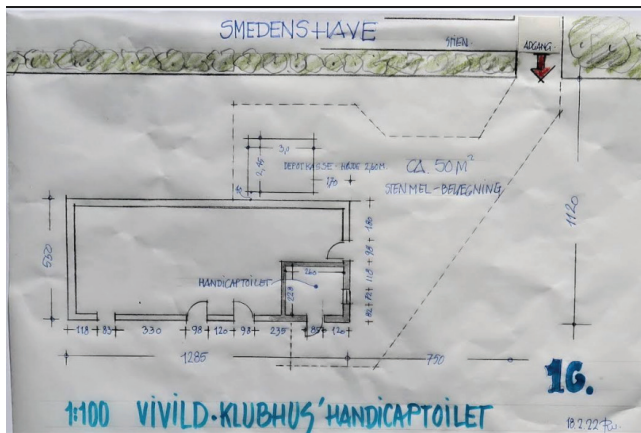 SMEDENSHAVE
STIEN.
ADGANG.
3,0
2,15
DEPOTKASSE - HØJDE 2,10M.
170
CA. 50 M²
STENMEL-BEVÆGNING
1120
550
180
98
118
HANDICAPTOILET
220
118
83
330
98
120
98
235
85
120
1285
750
1G.
1:100 VIVILD·KLUBHUS' HANDICAPTOILET
18.2.22